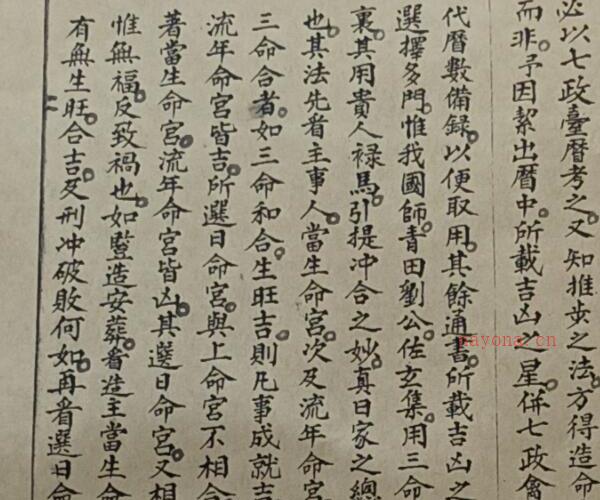 必以七政臺曆考之又知推步之法方得造命
而非予因絜出曆中所載吉凶之星併七政禽
代曆數備録以便取用其餘通書所載吉凶之
選擇多門惟我國師青田劉公佐玄集用三命
裏其用貴人禄馬引提冲合之妙真日家之總
也其法先看主事人當生命宮次及流年命宮
三命合者如三命和合生旺吉則凡事成就吉
流年命宮皆吉所選日命宮與上命宮不相合
著當生命宮流年命宮皆凶其選日命宮又相
惟無福反致禍也如豎造安葬看造主當生命
有無生旺合吉及刑冲破敗何如再看選日命
nayona.cn